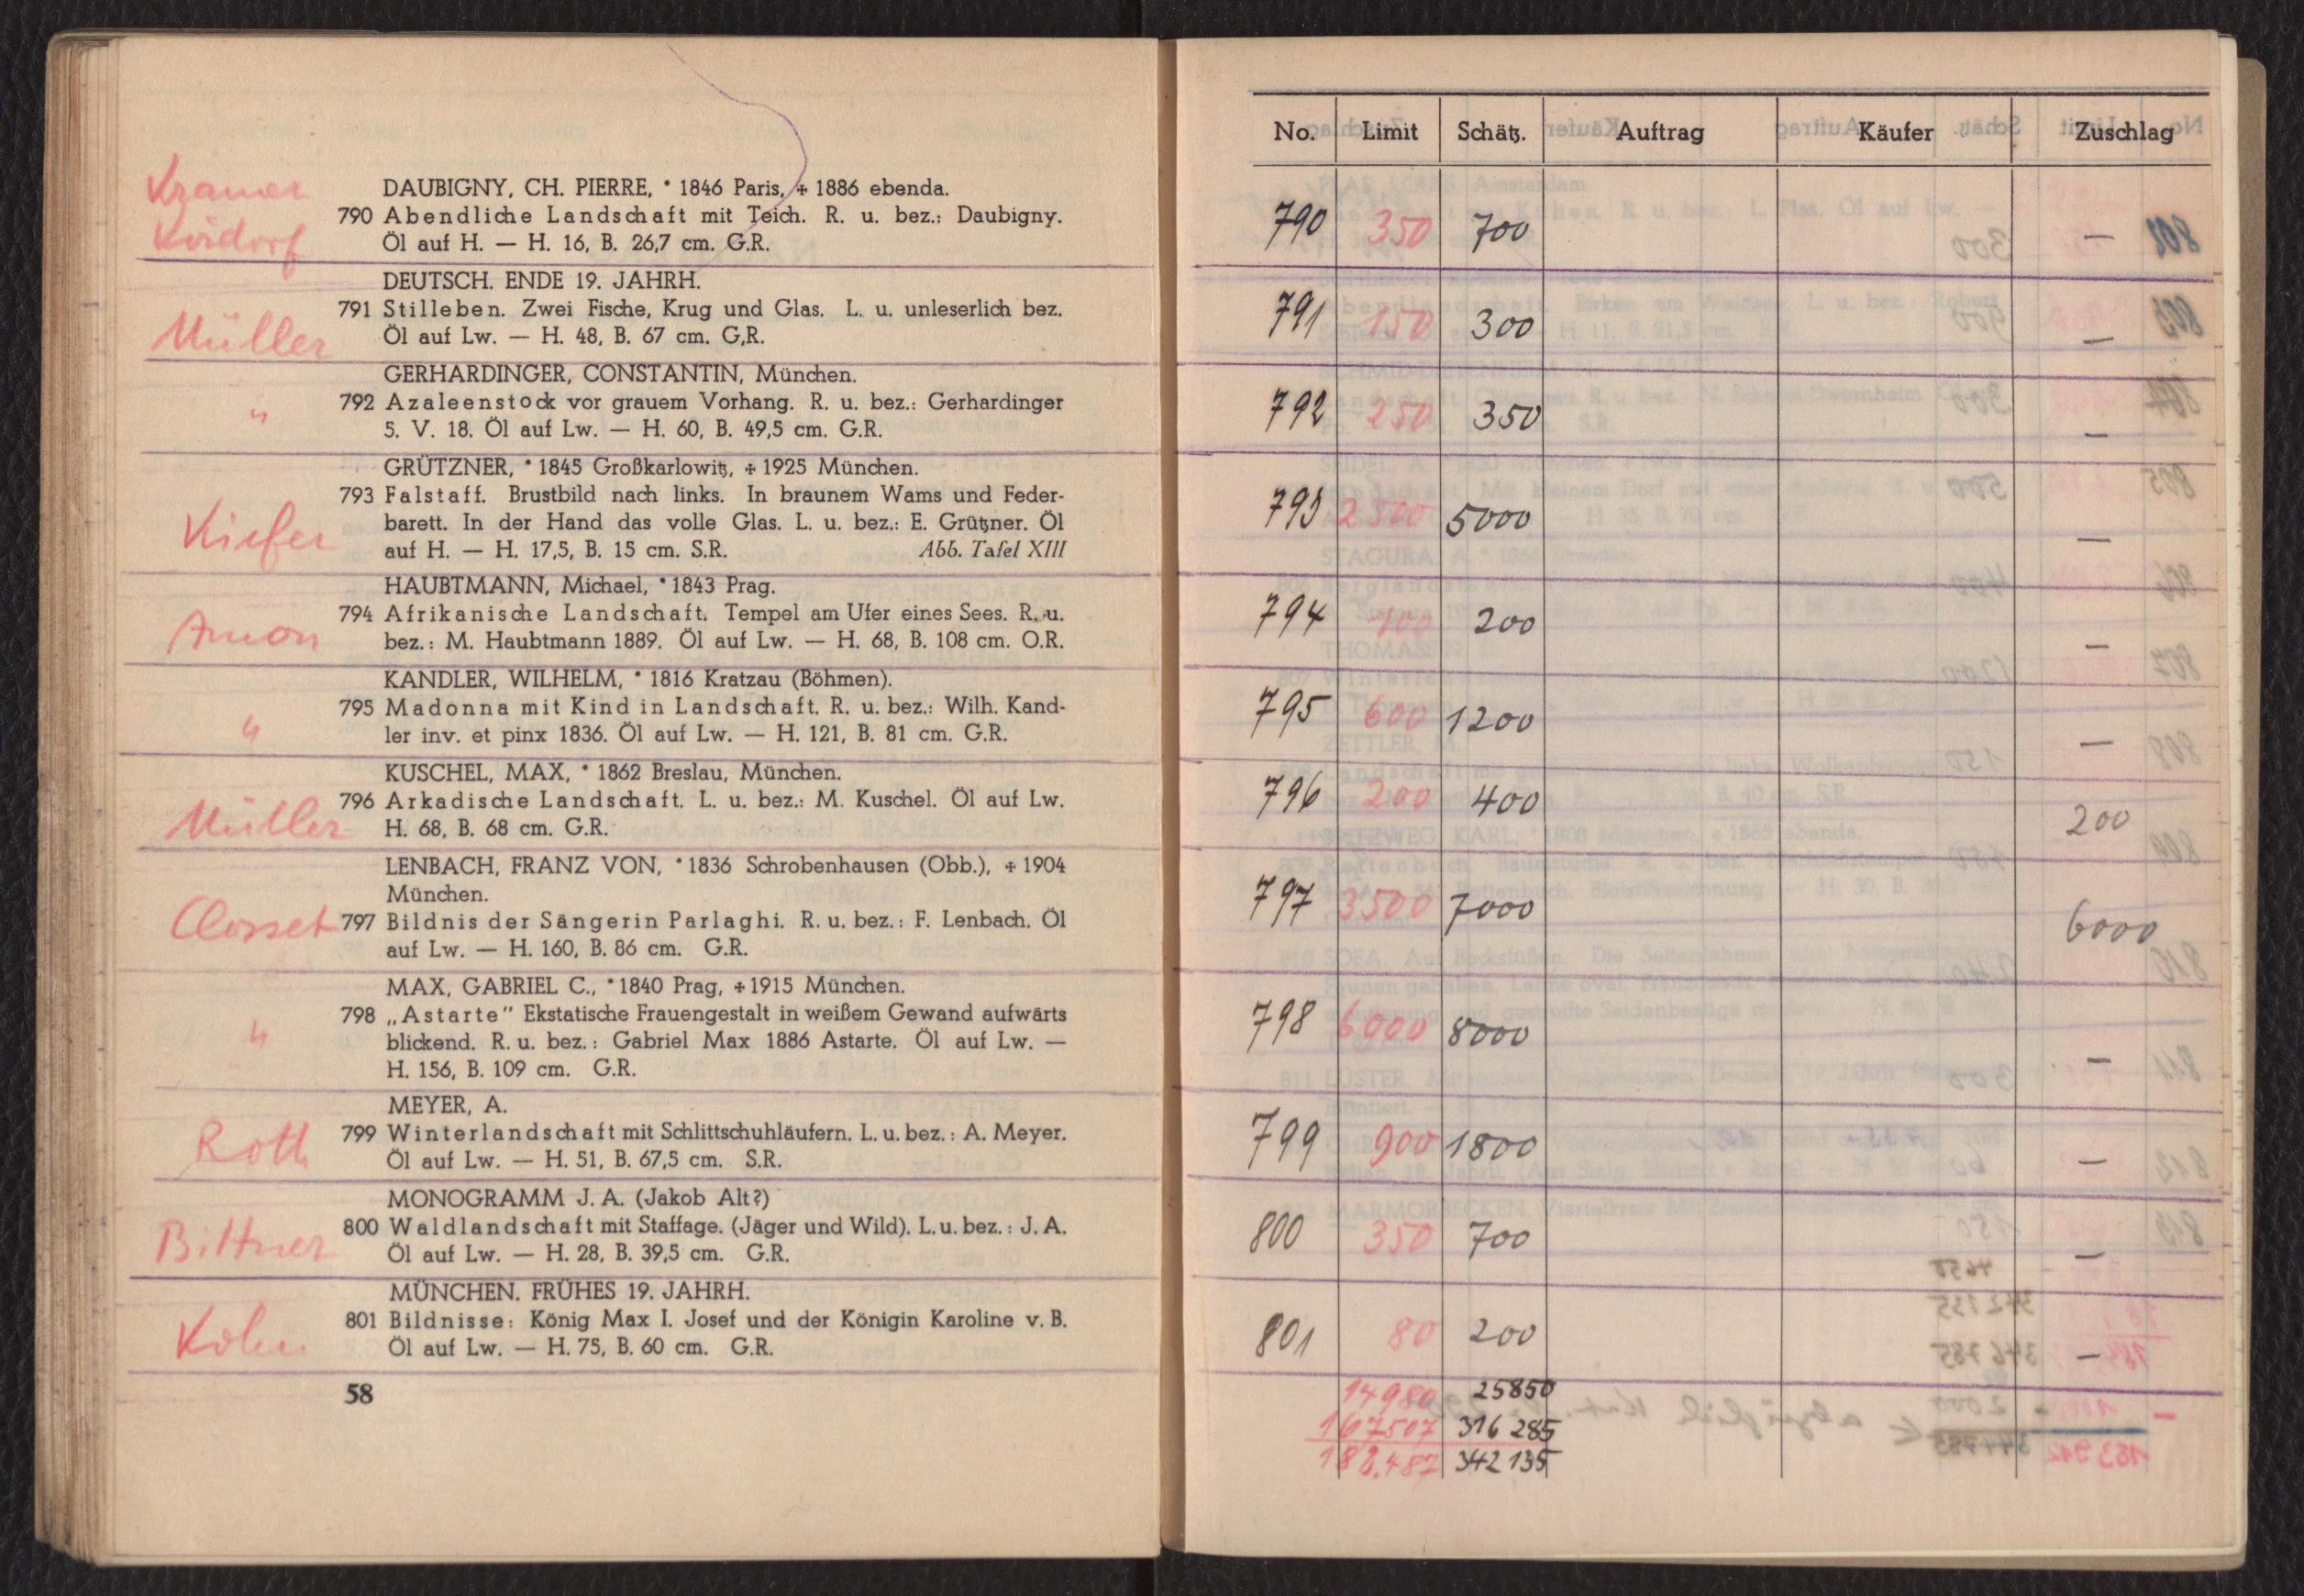 Kramer
Kördorf
DAUBIGNY, CH. PIERRE, * 1846 Paris, + 1886 ebenda.
790 Abendliche Landschaft mit Teich. R. u. bez.: Daubigny.
Öl auf H. — H. 16, B. 26,7 cm. G.R.
DEUTSCH. ENDE 19. JAHRH.
791 Stilleben. Zwei Fische, Krug und Glas. L. u. unleserlich bez.
Müller Öl auf Lw. — H. 48, B. 67 cm. G,R.
GERHARDINGER, CONSTANTIN, München.
" 792 Azaleenstock vor grauem Vorhang. R. u. bez.: Gerhardinger
5. V. 18. Öl auf Lw. — H. 60, B. 49,5 cm. G.R.
GRÜTZNER, * 1845 Großkarlowitz, + 1925 München.
793 Falstaff. Brustbild nach links. In braunem Wams und Feder-
Kiefer barett. In der Hand das volle Glas. L. u. bez.: E. Grützner. Öl
auf H. — H. 17,5, B. 15 cm. S.R. Abb. Tafel XIII
HAUBTMANN, Michael, * 1843 Prag.
794 Afrikanische Landschaft. Tempel am Ufer eines Sees. R. u.
Amon bez.: M. Haubtmann 1889. Öl auf Lw. — H. 68, B. 108 cm. O.R.
KANDLER, WILHELM, * 1816 Kratzau (Böhmen).
795 Madonna mit Kind in Landschaft. R. u. bez.: Wilh. Kand-
" ler inv. et pinx 1836. Öl auf Lw. — H. 121, B. 81 cm. G.R.
KUSCHEL, MAX, * 1862 Breslau, München.
796 Arkadische Landschaft. L. u. bez.: M. Kuschel. Öl auf Lw.
Müller H. 68, B. 68 cm. G.R.
LENBACH, FRANZ VON, * 1836 Schrobenhausen (Obb.), + 1904
München.
Closset 797 Bildnis der Sängerin Parlaghi. R. u. bez.: F. Lenbach. Öl
auf Lw. — H. 160, B. 86 cm. G.R.
MAX, GABRIEL C., * 1840 Prag, + 1915 München.
798 „Astarte" Ekstatische Frauengestalt in weißem Gewand aufwärts
" blickend. R. u. bez.: Gabriel Max 1886 Astarte. Öl auf Lw. —
H. 156, B. 109 cm. G.R.
MEYER, A.
Roth 799 Winterlandschaft mit Schlittschuhläufern. L. u. bez.: A. Meyer.
Öl auf Lw. — H. 51, B. 67,5 cm. S.R.
MONOGRAMM J. A. (Jakob Alt?)
Bittner 800 Waldlandschaft mit Staffage. (Jäger und Wild). L. u. bez.: J. A.
Öl auf Lw. — H. 28, B. 39,5 cm. G.R.
MÜNCHEN. FRÜHES 19. JAHRH.
801 Bildnisse: König Max I. Josef und der Königin Karoline v. B.
Öl auf Lw. — H. 75, B. 60 cm. G.R.
58
No. Limit Schätz. Auftrag Käufer Zuschlag
790 350 700 —
791 150 300 —
792 250 350 —
793 2500 5000 —
794 100 200 —
795 600 1200 —
796 200 400 200
797 3500 7000 6000
798 6000 8000 —
799 900 1800 —
800 350 700 —
801 80 200 —
14980 25850
167507 316 285
182.487 342 135